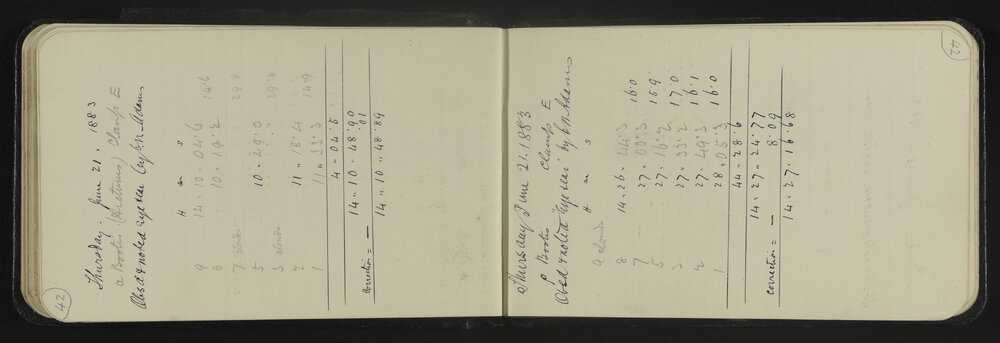 42
Thursday. June 21 1883
α Bootis (Arcturus) Clamp E
Obsd & noted eye & ear by C. N. Adams
H m s
9 14 . 10 . 04.6 14.6
8 10 . 19.2
7 clouds 29.8
5 10 . 49.0
3 clouds 29.4
2 11 . 18.4
1 11 . 33.3 14.9
4 . 04.5
14 . 10 . 48.90
correction = — .01
14 . 10 . 48.89
42
Thursday June 21. 1883
ρ Bootis Clamp E
Obsd & noted eye & ear by C. N. Adams
H m s
9 clouds
8 14 . 26 . 44.3 16.0
7 27 . 00.3 15.9
5 27 . 16.2 17.0
3 27 . 33.2 16.1
2 27 . 49.3 16.0
1 28 . 05.3
44 . 28.6
14 . 27 . 24.77
correction = — 8.09
14 . 27 . 16.68